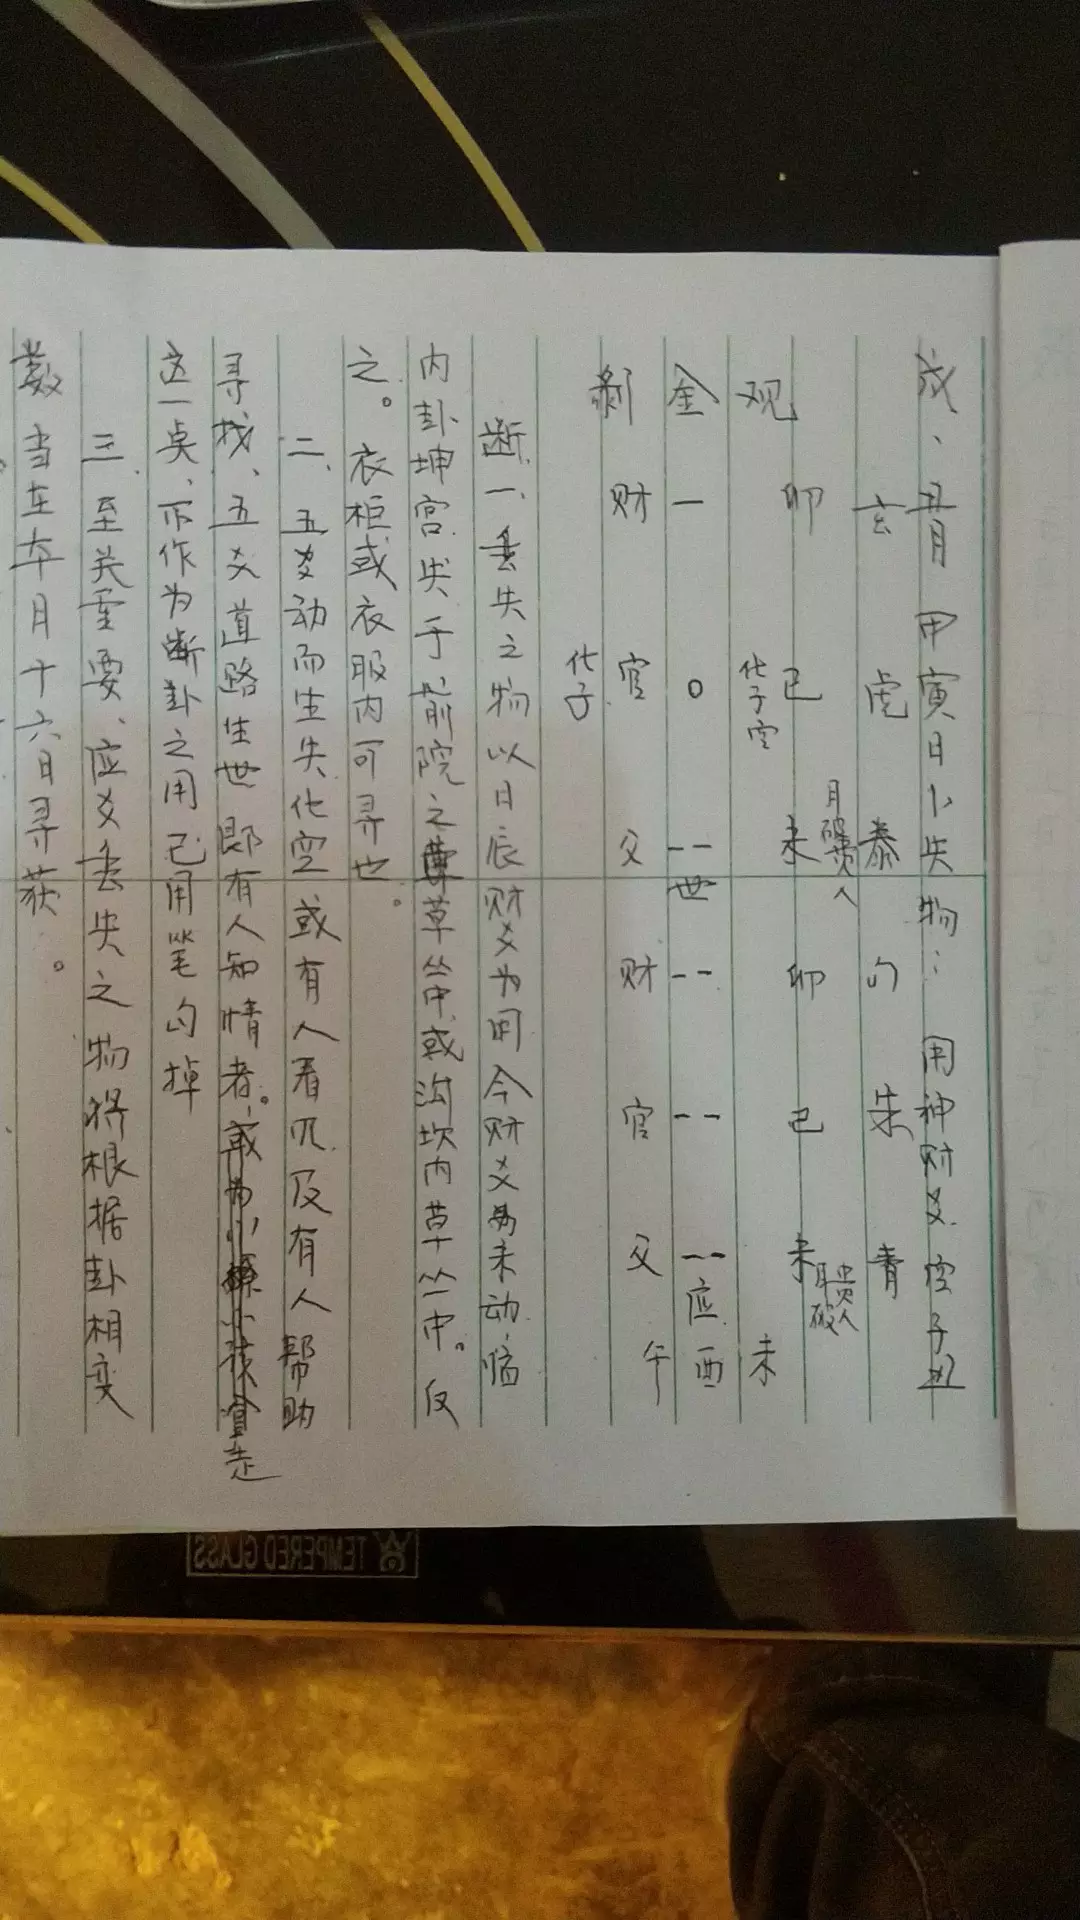 戌、丑月 甲寅日卜失物：用神财爻.空子丑
玄 虎 泰 勾 朱 青
月破贵人 月破贵人
卯 巳 未 卯 巳 未
观 化子空 未
金 一 o -- 世 -- -- -- 应 酉
剥 财 官 父 财 官 父 午
化子
断.一、丢失之物以日辰财爻为用今财爻未动临
内卦坤宫失于前院之草丛中或沟坎内草丛中。仅
之。衣柜或衣服内可寻也。
二、五爻动而生失化空或有人看见及有人帮助
寻找、五爻道路生世即有人知情者。或为小孩拿走
这一点、不作为断卦之用已用笔勾掉
三.至关重要、应爻丢失之物将根据卦相变
数当在本月十六日寻获。
TEMPERED GLASS